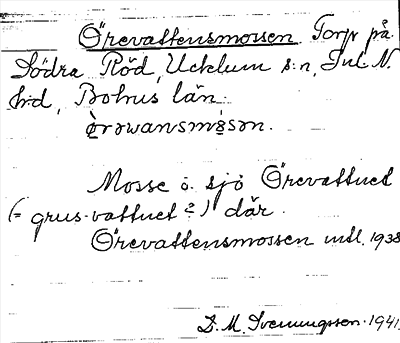 Örevattensmossen Torp på
Södra Röd, Ucklum s:n, Inl. N.
hd, Bohus län.
òrəwansmòsən.
Mosse o. sjö Örevattnet
(= grus-vattnet?) där.
Örevattensmossen mtl. 1938
D. M. Svenungsson 1941.